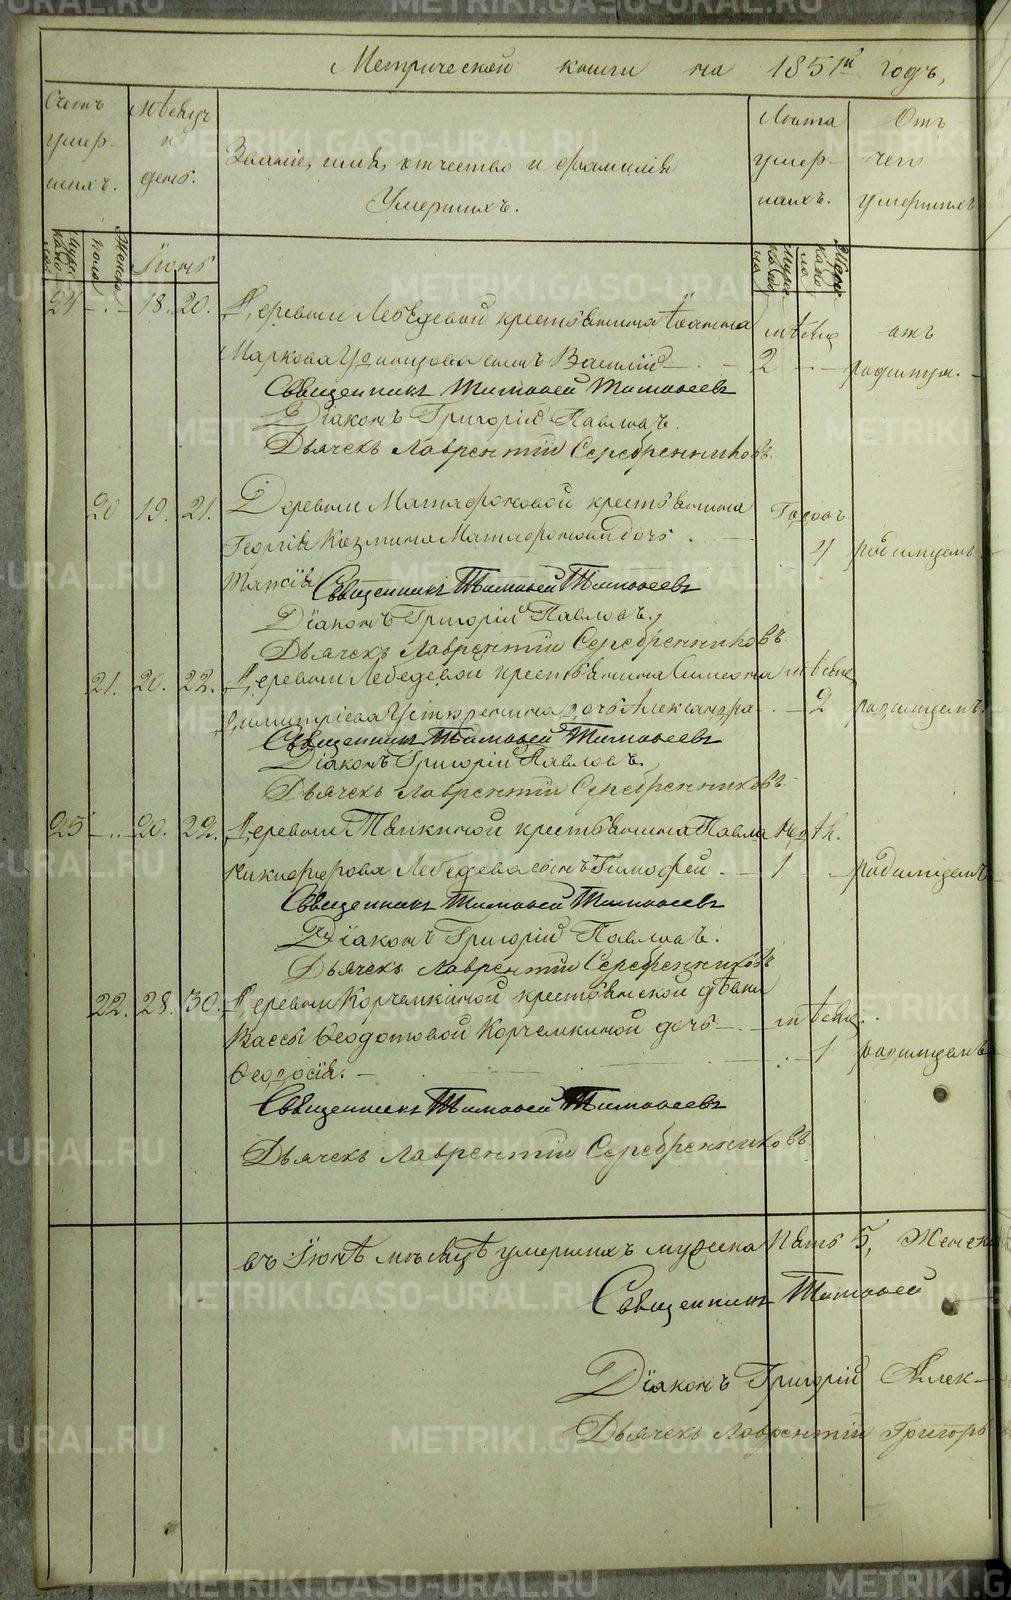 Метрической книги на 1851й годъ,
Счетъ умер- шихъ.
Мѣсяцъ и день.
Званіе, имя, отчество и фамилія
Умершихъ.
Лѣта умер- шихъ.
Отъ чего умершихъ
Мужескаго
Женска пола
Іюнь
Мужескаго
24 18. 20. Деревни Лебедевой крестьянина Іоанна мѣсяц отъ
Маркова сынъ Василій 2
Священникъ Тимоѳей Тимоѳеевъ
Діаконъ Григорій Павловъ.
Дьячекъ Лаврентій Серебренниковъ.
20 19. 21. Деревни Матафоновой крестьянина Годовъ
Георгія Козмина Матафонова дочь 4 родимцемъ.
Священникъ Тимоѳей Тимоѳеевъ
Діаконъ Григорій Павловъ.
Дьячекъ Лаврентій Серебренниковъ.
21. 20. 22. Деревни Лебедевой крестьянина Симеона мѣсяц
Димитріева дочь Александра 2 родимцемъ.
Священникъ Тимоѳей Тимоѳеевъ
Діаконъ Григорій Павловъ.
Дьячекъ Лаврентій Серебренниковъ.
25 20. 22. Деревни крестьянина Павла
Никифорова Лебедева сынъ Тимофей 1 родимцемъ
Священникъ Тимоѳей Тимоѳеевъ
Діаконъ Григорій Павловъ.
Дьячекъ Лаврентій Серебренниковъ
22. 28. 30. Деревни Корчемкиной крестьянской дѣвки
Вассы Ѳеодотовой Корчемкиной дочь мѣсяц.
Ѳеодосія. 1 родимцемъ
Священникъ Тимоѳей Тимоѳеевъ
Дьячекъ Лаврентій Серебренниковъ
въ Іюнѣ мѣсяцѣ умершихъ мужска пять 5, Женска
Священникъ Тимоѳей
Діаконъ Григорій Алек-
Дьячекъ Лаврентій Григорь
METRIKI.GASO-URAL.RU